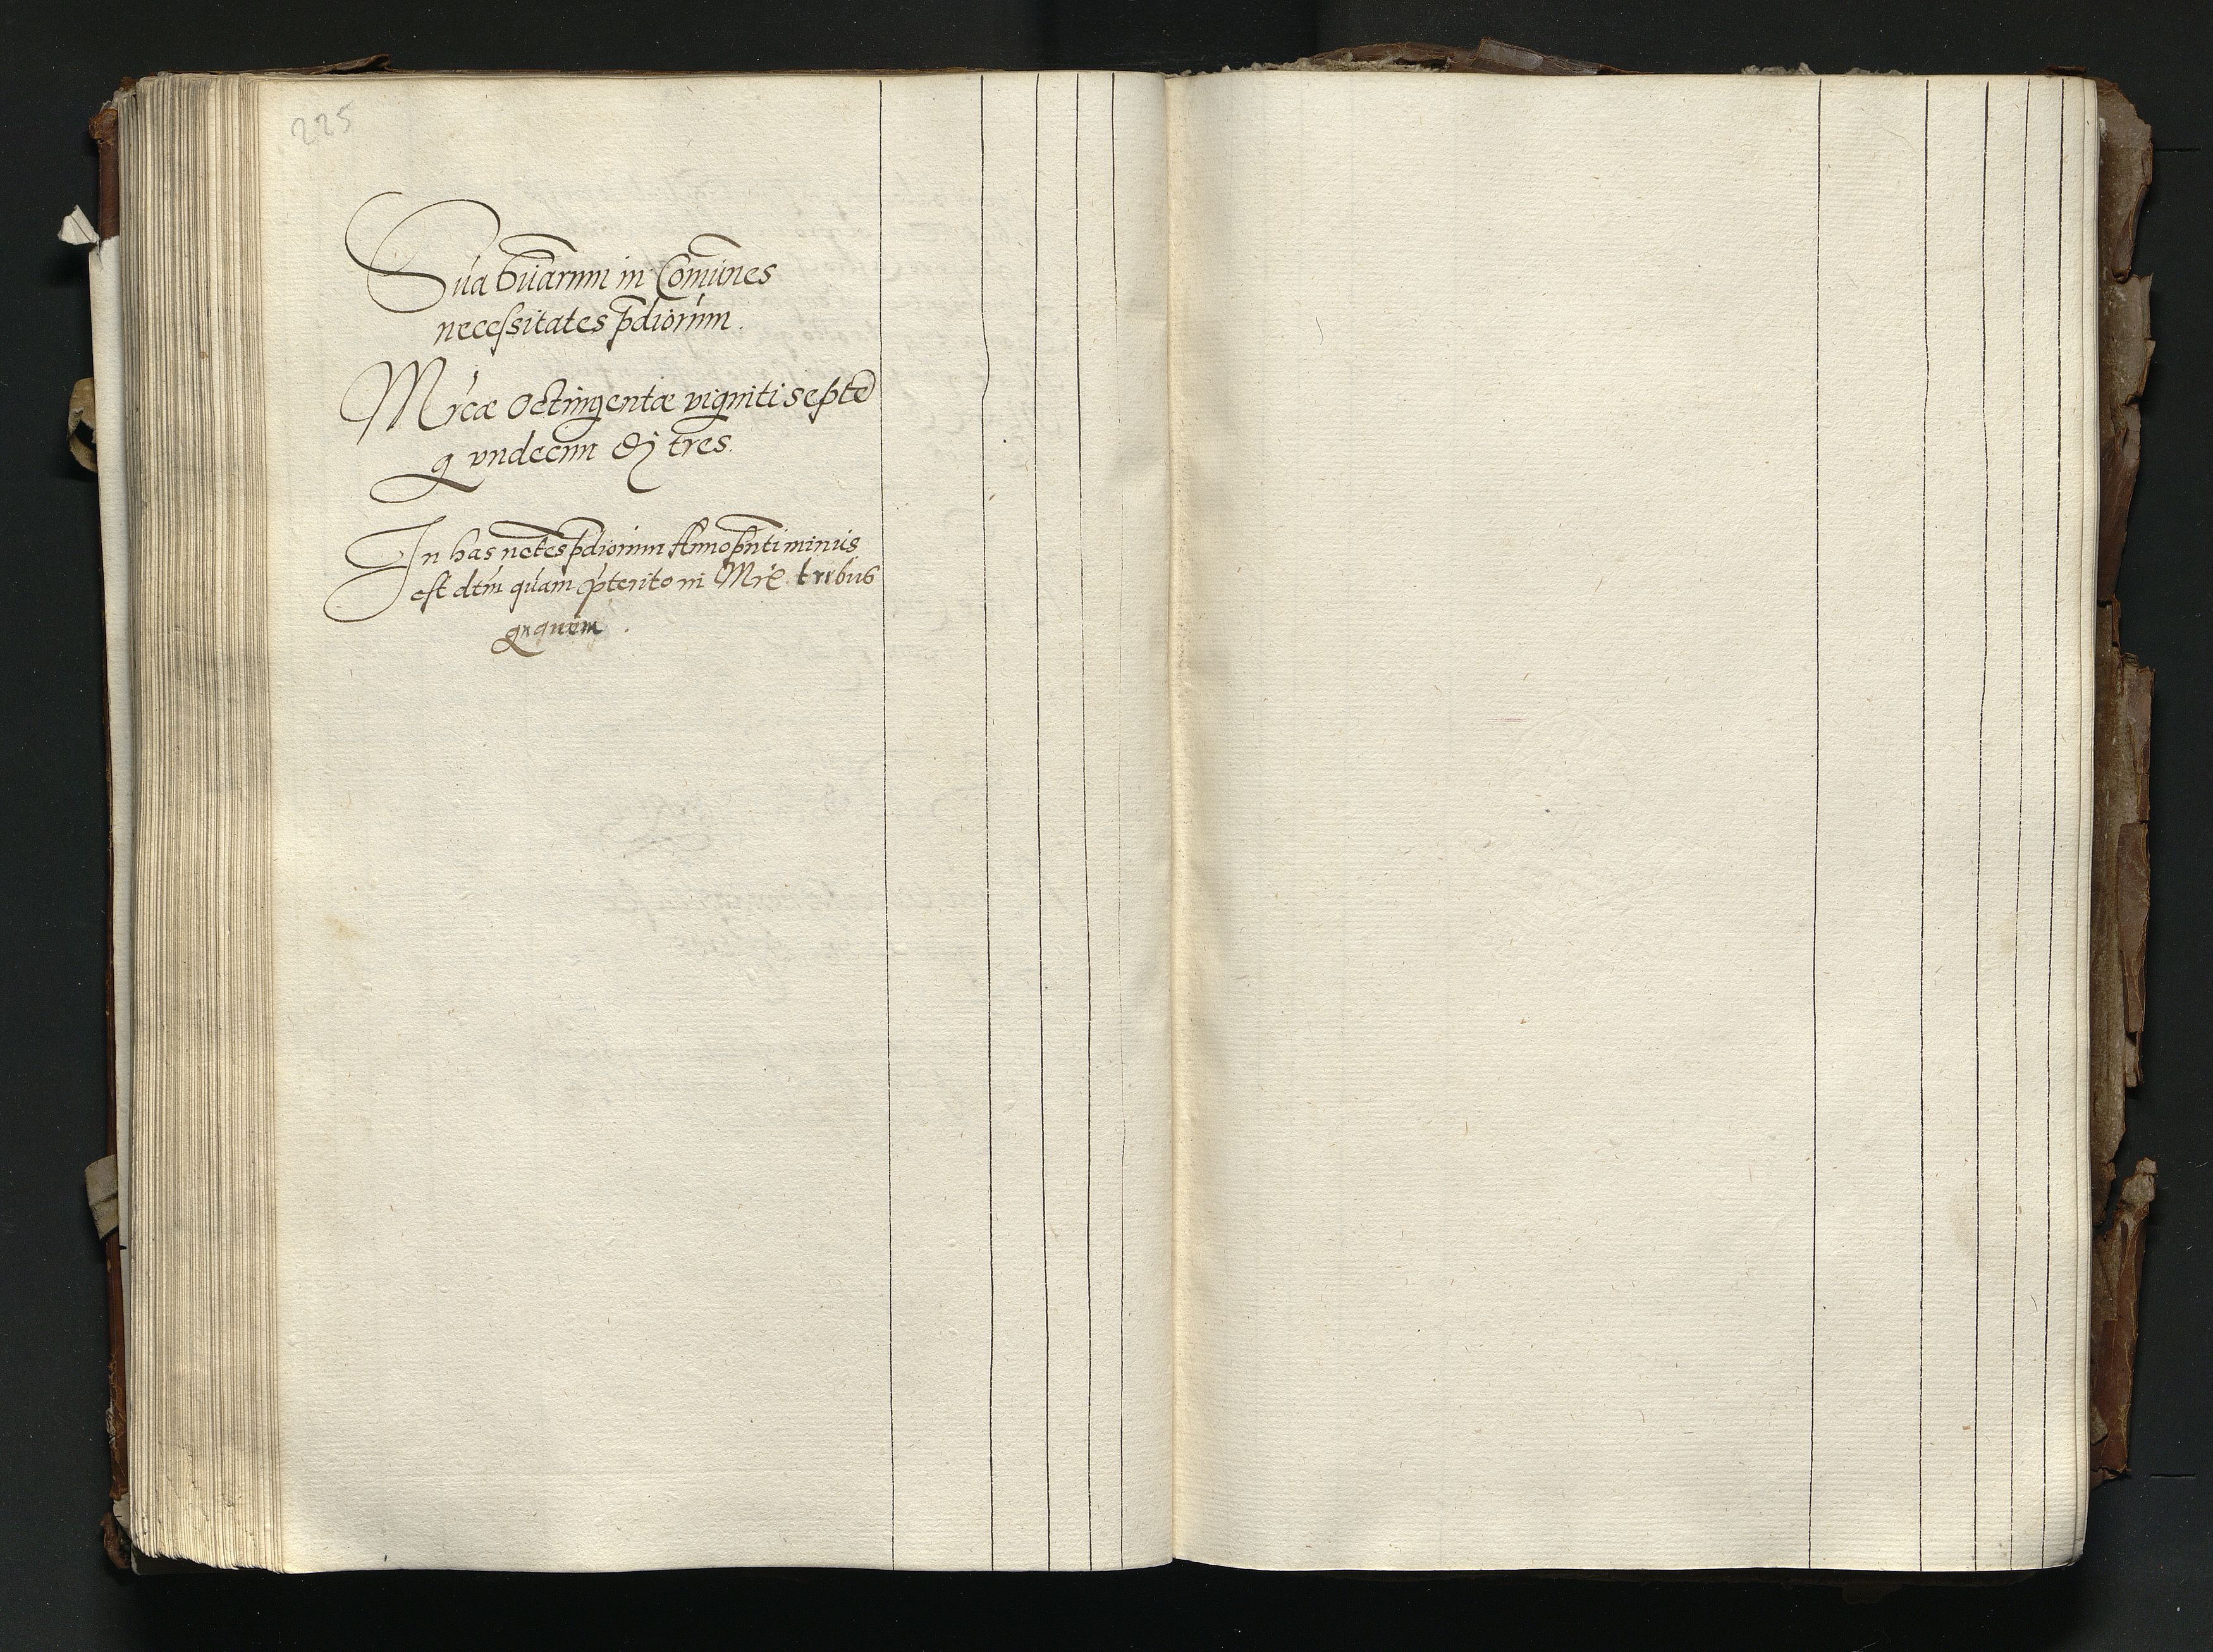 225
Sūa Grārum in Com̄unes
necessitates p̄diorum.
Mrcæ octingentæ viginti septē
g vndecim tres.
In has nētes p̄diorum Anno p̄nti minus
est dtm̄ quam p̄terito in Mrc̄. tribus